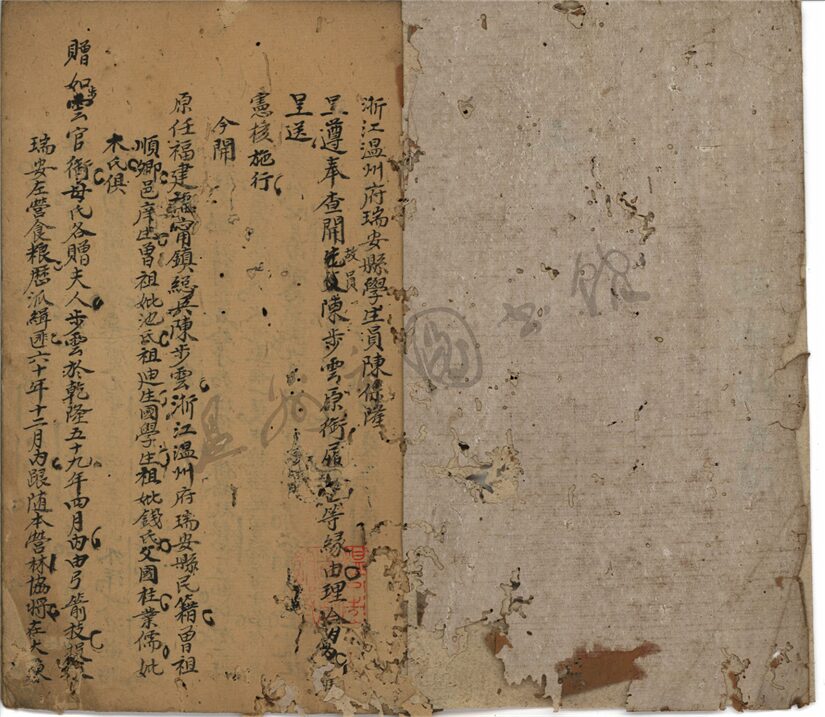 浙江温州府瑞安縣學生員陳保隆
呈遵奉查開故員陳步雲原銜履等緣由理合
呈送
憲核施行
今開
原任福建福甯鎮總兵陳步雲浙江温州府瑞安縣民籍曾祖
順卿邑庠生曾祖妣池氏祖迪生國學生祖妣錢氏父國柱業儒妣
木氏俱
贈如步雲官銜母氏各贈夫人步雲於乾隆五十九年四月內由弓箭技
瑞安左營食粮歷派緝匪六十年十二月內跟随本營林協將在大